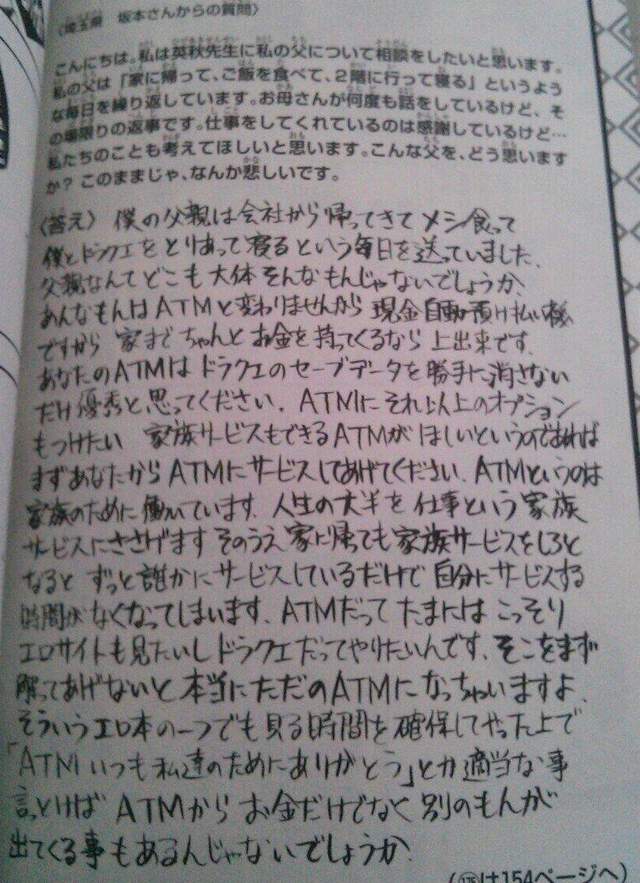 〈埼玉県　坂本さんからの質問〉
こんにちは。私は英秋先生に私の父について相談をしたいと思います。
私の父は「家に帰って、ご飯を食べて、2階に行って寝る」というよう
な毎日を繰り返しています。お母さんが何度も話をしているけど、そ
の場限りの返事です。仕事をしてくれているのは感謝しているけど…
私たちのことも考えてほしいと思います。こんな父を、どう思います
か？ このままじゃ、なんか悲しいです。
〈答え〉 僕の父親は会社から帰ってきて メシ食って
僕とドラクエをとりあって寝るという毎日を送っていました、
父親なんてどこも大体そんなもんじゃないでしょうか、
あんなもんはATMと変わりませんから 現金自動預け払い機
ですから 家までちゃんとお金を持ってくるなら上出来です、
あなたのATMはドラクエのセーブデータを勝手に消さない
だけ優秀と思ってください、ATMにそれ以上のオプション
もつけたい 家族サービスもできるATMがほしいというのであれば
まずあなたからATMにサービスしてあげてください、ATMというのは
家族のために働いています、人生の大半を仕事という家族
サービスにささげます そのうえ家に帰っても家族サービスをしろと
なると ずっと誰かにサービスしているだけで自分にサービスする
時間がなくなってしまいます、ATMだってたまにはこっそり
エロサイトも見たいしドラクエだってやりたいんです、そこをまず
解ってあげないと本当にただのATMになっちゃいますよ、
そういうエロ本の一つでも見る時間を確保してやった上で
「ATMいつも私達のためにありがとう」とか適当な事
言っとけばATMからお金だけでなく別のもんが
出てくる事もあるんじゃないでしょうか、
は154ページへ)